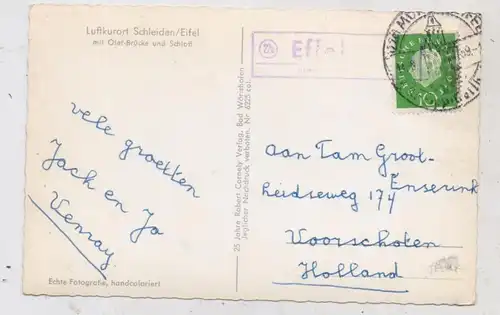 Luftkurort Schleiden/Eifel
mit Olef-Brücke und Schloß
(22a) Effel
10
vele groetten
Jach en Jo
Venray.
Echte Fotografie, handcoloriert
25 Jahre Robert Cornely Verlag, Bad Wörishofen
Jeglicher Nachdruck verboten. Nr 6225 col.
aan Fam Groot-
Enserink
heidseweg 174
Voorschoten
Holland